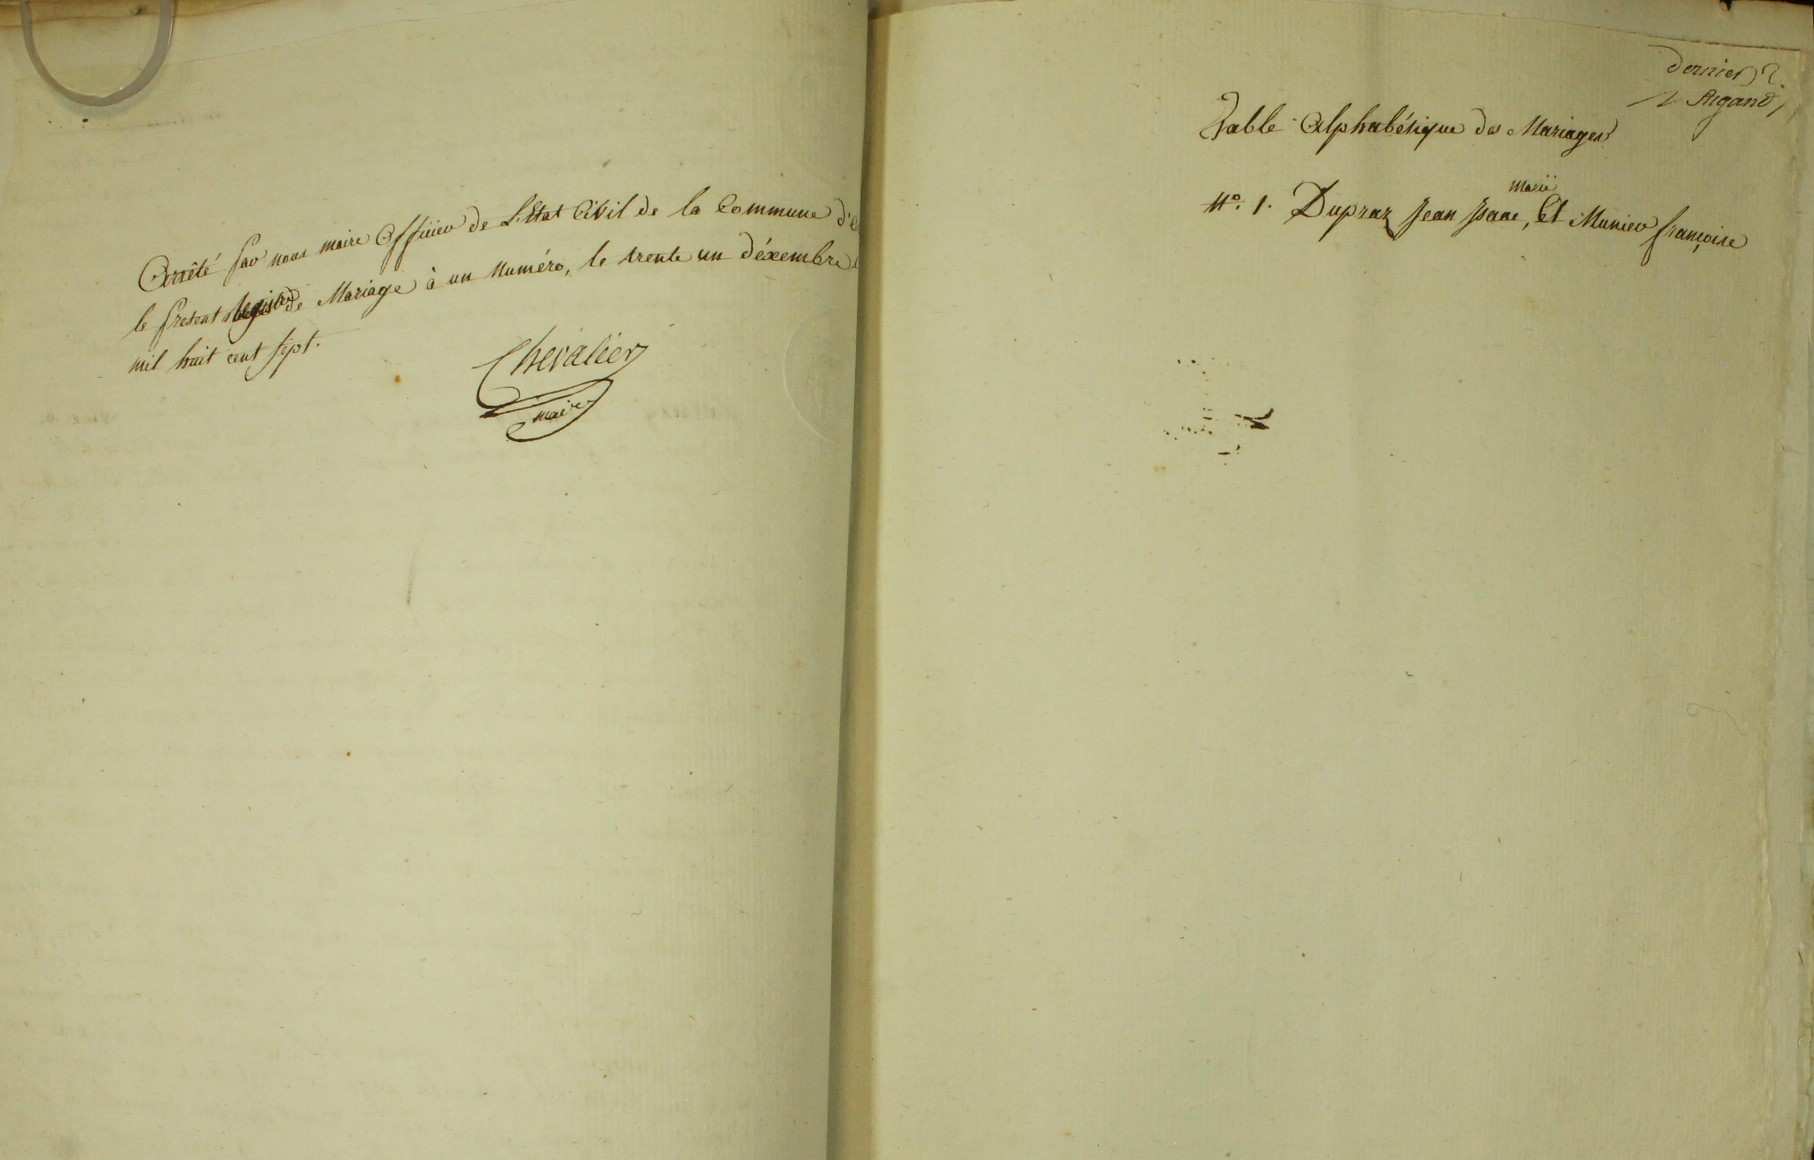 Arrêté par nous maire Officier de L'Etat Civil de la Commune d'
le present Registre de Mariage à un Numéro, le trente un déxembre
mil huit cent sept.
Chevalier
maire
dernier
Argand
Table Alphabétique des Mariages
Marie
N.o 1. Dupraz Jean Isaac, Et Munier françoise